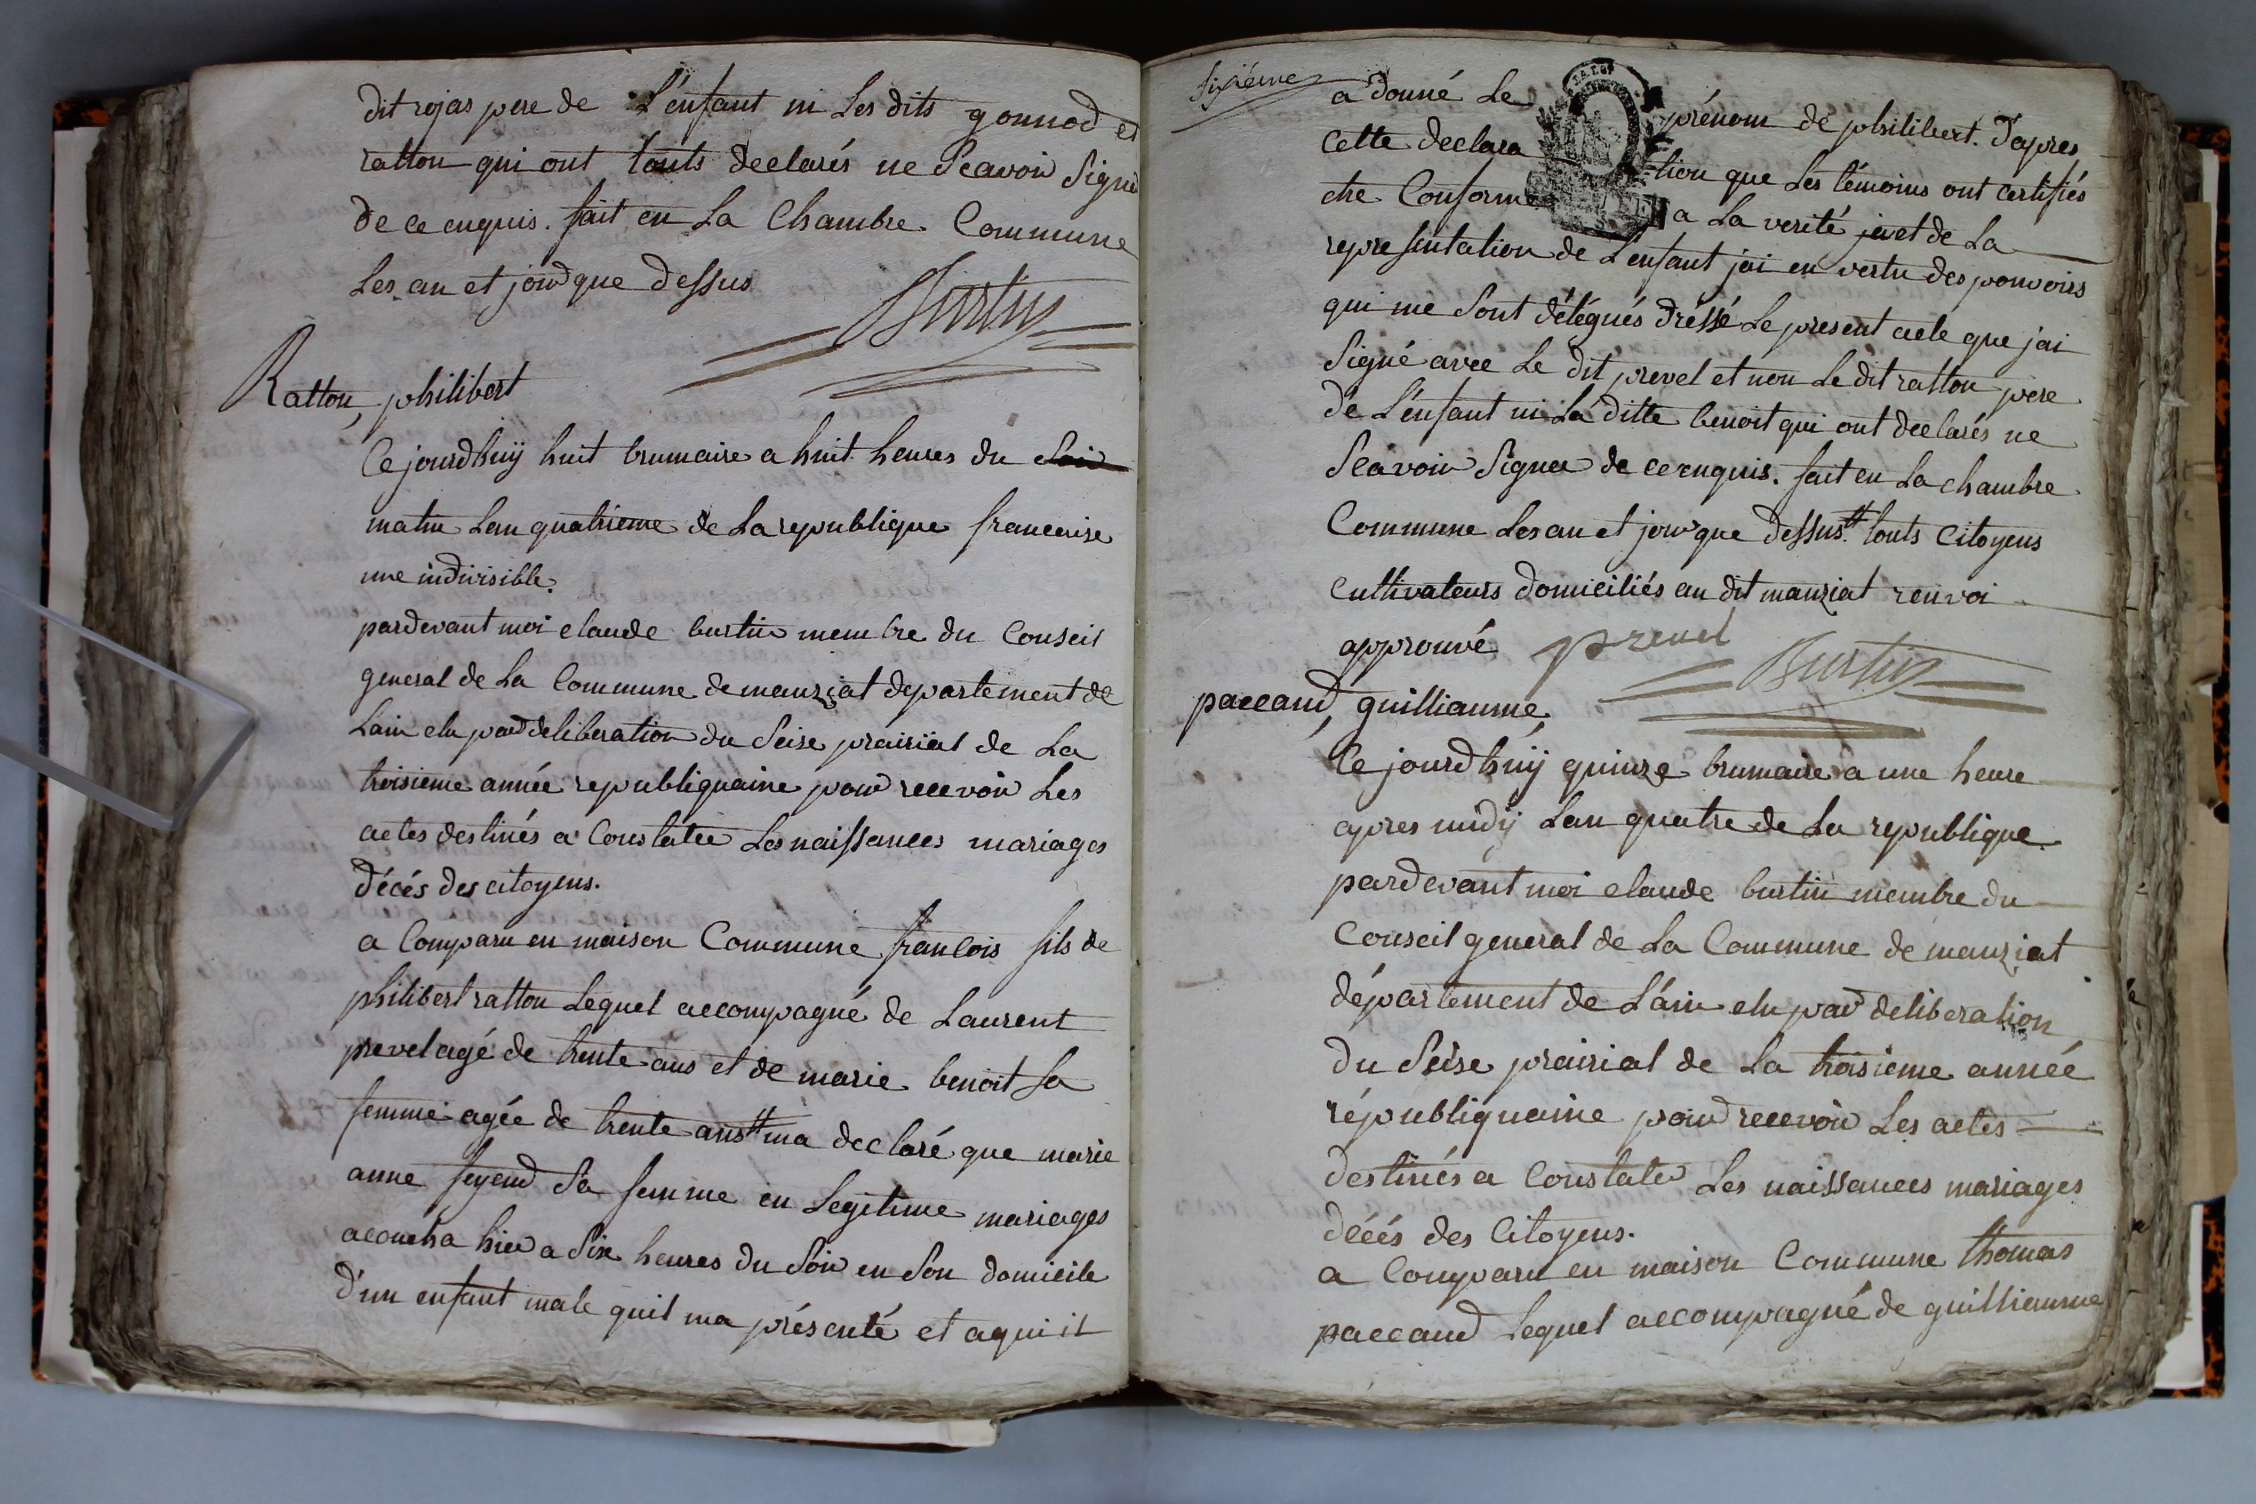 dit rojas pere de L'enfant ni Les dits gonnod et
ratton qui ont touts declarés ne Scavoir Signer
de ce enquis. fait en La Chambre Commune
Les an et jour que dessus
Burtin
Ratton, philibert
Ce jourdhuÿ huit brumaire a huit heures du Soir
matin Lan quatrieme de La republique francaise
une indivisible.
pardevant moi claude burtin membre du Conseil
general de La Commune de manziat departement de
Lain elu par deliberation du Seise prairial de La
troisieme année republiquaine pour recevoir Les
actes destinés a Constater Les naissances mariages
décés des citoyens.
a Comparu en maison Commune francois fils de
philibert ratton Lequel accompagné de Laurent
prevel agé de trente ans et de marie benoit Sa
femme agée de trente ans # ma declaré que marie
anne feyend Sa femme en Legitime mariages
acoucha hier a Six heures du Soir en Son domicile
d'un enfant male quil ma présenté et aqui il
Sixiéme
a donné Le prénom de philibert. D'apres
cette declaration que Les témoins ont certifiés
etre Conforme a La verité et de La
representation de L'enfant jai en vertu des pouvoirs
qui me Sont délégués dréssé Le present acte que jai
Signé avec Le dit prevel et non Le dit ratton pere
de L'enfant ni La ditte benoit qui ont declarés ne
Scavoir Signer de ce enquis. fait en La chambre
Commune Les an et jour que dessus # touts Citoyens
cultivateurs domiciliés au dit manziat renvoi
approuvé prevel
Burtin
paccaud, guilliaume,
Ce jourdhuÿ quinze brumaire a une heure
apres midÿ Lan quatre de La republique
pardevant moi claude burtin membre du
Conseil general de La Commune de manziat
département de L'ain elu par deliberation
du Seise prairial de La troisieme année
républiquaine pour recevoir Les actes
destinés a Constater Les naissances mariages
décés des Citoyens.
a Comparu en maison Commune thomas
paccaud Lequel accompagné de guilliaume